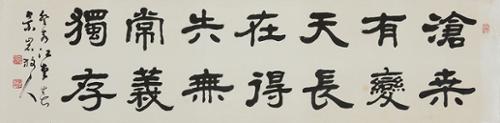 滄桒
有變
天長
在得
失無
常義
獨存